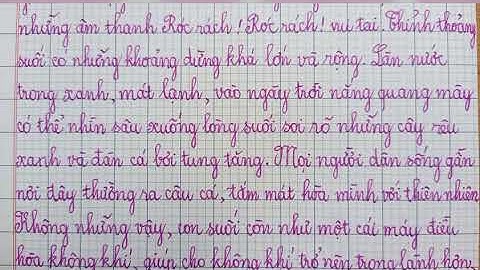 những âm thanh Róc rách! Róc rách! vui tai. Thỉnh thoảng
suối có những khoảng dừng khá lớn và rộng. Làn nước
trong xanh, mát lạnh, vào ngày trời nắng quang mây
có thể nhìn sâu xuống lòng suối soi rõ những cây rêu
xanh và đàn cá bơi tung tăng. Mọi người dân sống gần
nơi đây thường ra câu cá, tắm mát hòa mình với thiên nhiên
Không những vậy, con suối còn như một cái máy điều
hòa không khí, giúp cho không khí trở nên trong lành hơn,